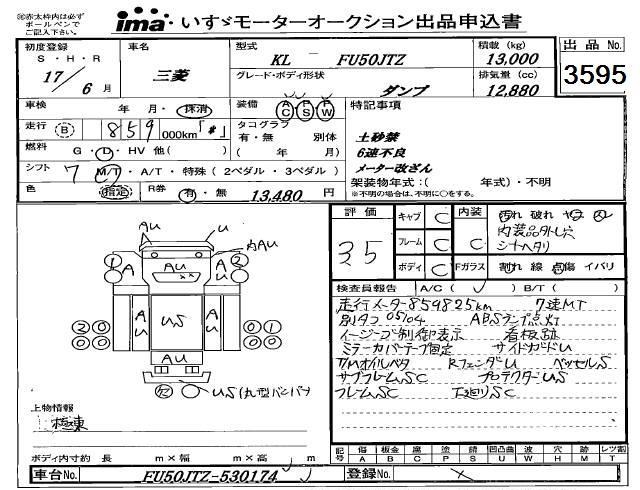 ㊟赤太枠内は必ず
ボールペンで
ご記入下さい。
ima・いすゞモーターオークション出品申込書
初度登録 車名 型式 積載 (kg) 出品No.
S・H・R
17/6月 三菱 KL － FU50JTZ 13,000 3595
グレード・ボディ形状 排気量 (cc)
ダンプ 12,880
車検 年 月・抹消 装備 AC PS PW 特記事項
走行 (B) 859 000km「#」 タコグラフ
有・無 別体
(年 月)
土砂禁
6速不良
メーター改ざん
燃料 G・L・HV 他( )
シフト 7 MT・A/T・特殊(2ペダル・3ペダル)
架装物年式:( 年式)・不明
※不明の場合は、不明に○をする。
色 指定 R券 有・無 13,480 円
評価 キャブ C 内装 C 汚れ 破れ
3.5 フレーム C 内装品外し穴
シートヘタリ
ボディ C Fガラス 割れ 線 点傷 イバリ
検査員報告 A/C( ) B/T( )
走行メーター859825km 7速MT
別タコ05104 ABSランプ点灯
イージーゴー制御表示 看板跡
ミラーカバーテープ固定 サイドガードU
T/MオイルベタRフェンダーU ベッセルS
サブフレームSC プロテクターUS
フレームSC 下廻りSC
AU U 内AU
A AU A
1 2
AU US AU
20 01
20 00
AU
US(丸型バンパー)
上物情報
極東
ボディ内寸約 長 m×幅 m×高 m
記号 傷 板金 腐 塗 錆 凹凸曲 波 穴 跡 レツ割
A B C P S U W H M T
車台No. FU50JTZ-530174 登録No.